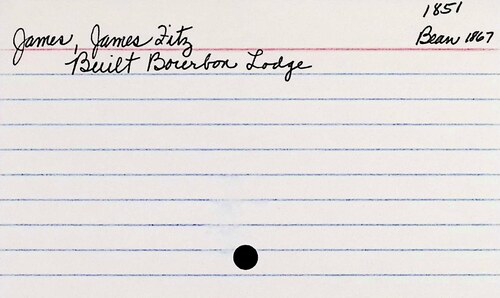 1851
James, James Fitz
Bean 1867
Built Bourbon Lodge